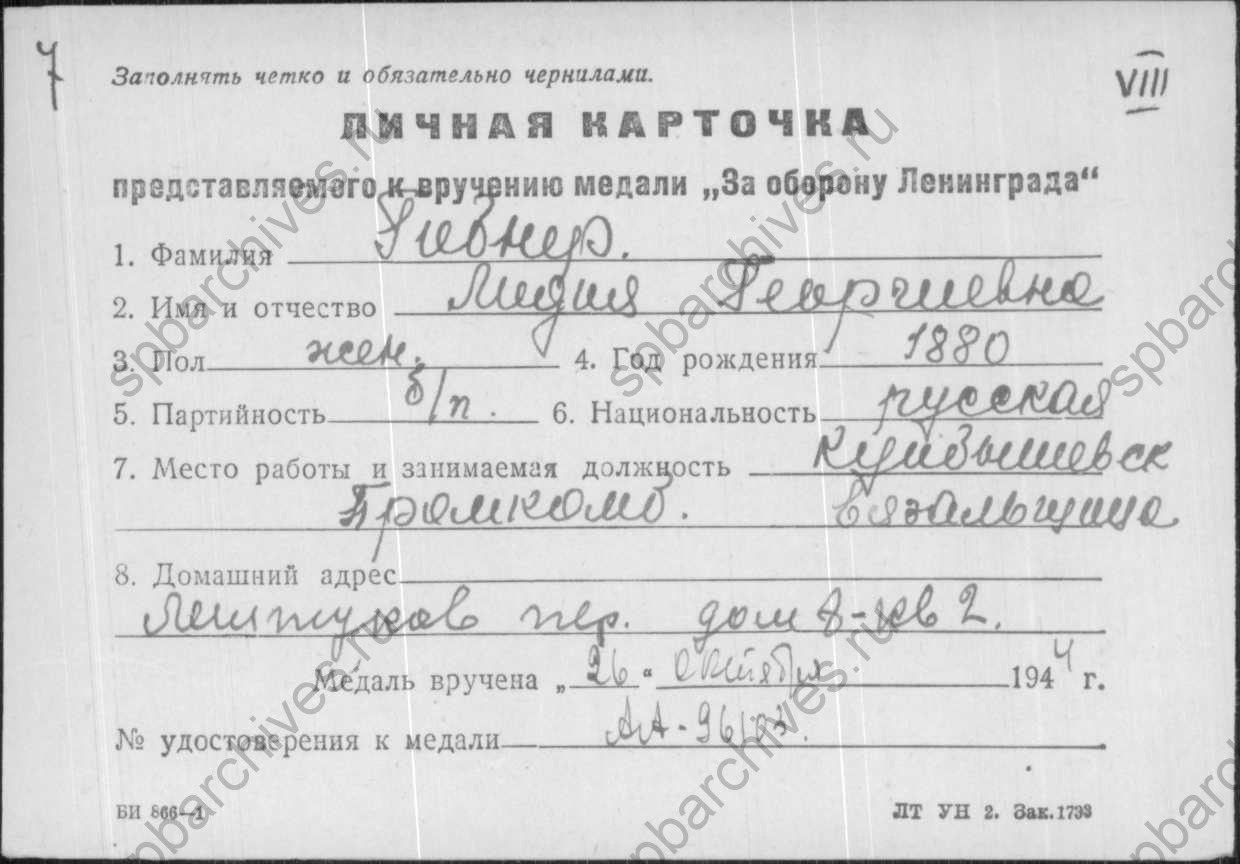 7
VIII
Заполнять четко и обязательно чернилами.
ЛИЧНАЯ КАРТОЧКА
представляемого к вручению медали „За оборону Ленинграда“
1. Фамилия Гибнер.
2. Имя и отчество Лидия Георгиевна
3. Пол жен. 4. Год рождения 1880
5. Партийность б/п. 6. Национальность русская
7. Место работы и занимаемая должность Куйбышевск
Промкомб. вязальщица
8. Домашний адрес
Лештуков пер. дом 8-кв 2.
Медаль вручена „26“ октября 1944 г.
№ удостоверения к медали АА-96103.
БИ 866—1 ЛТ УН 2. Зак. 1733
spbarchives.ru
spbarchives.ru
spbarchives.ru
spbarchives.ru